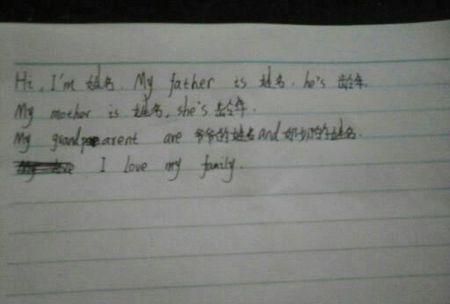 Hi, I'm 姓名. My father is 姓名. he's 龄年.
My mother is 姓名, she's 龄年.
My grandparent are 爷爷的姓名and奶奶的姓名.
I love my family.